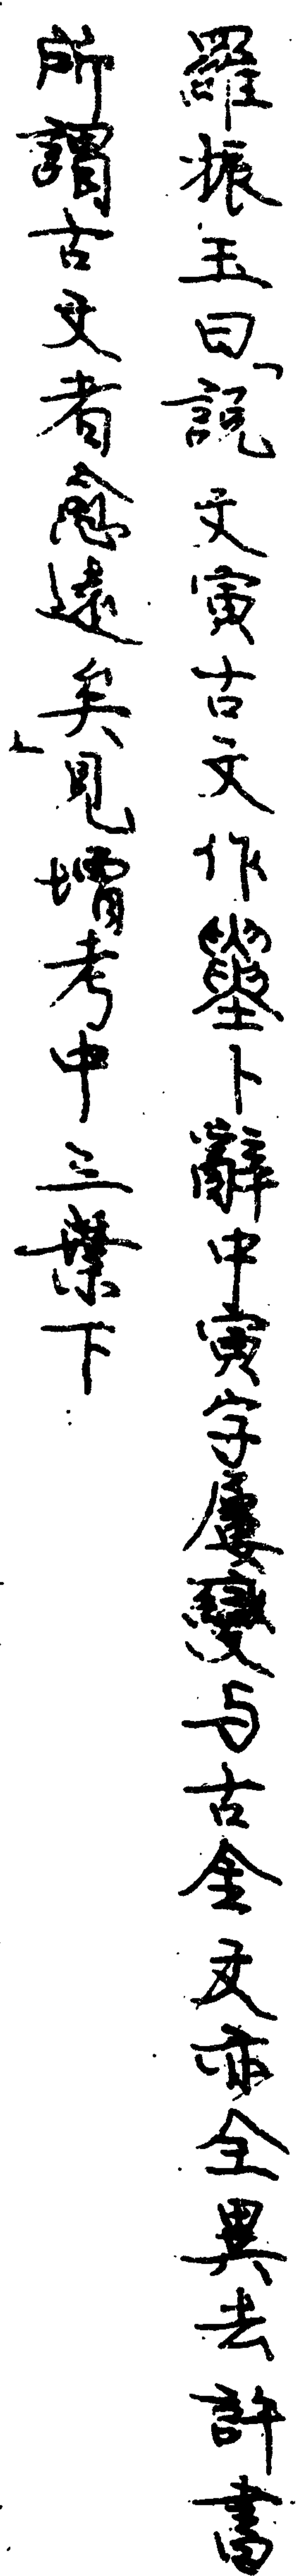 羅振玉曰「說文寅古文作𡒄卜辭中寅字屢變与古金文亦全異去許書
所謂古文者愈遠矣」見增考中三葉下